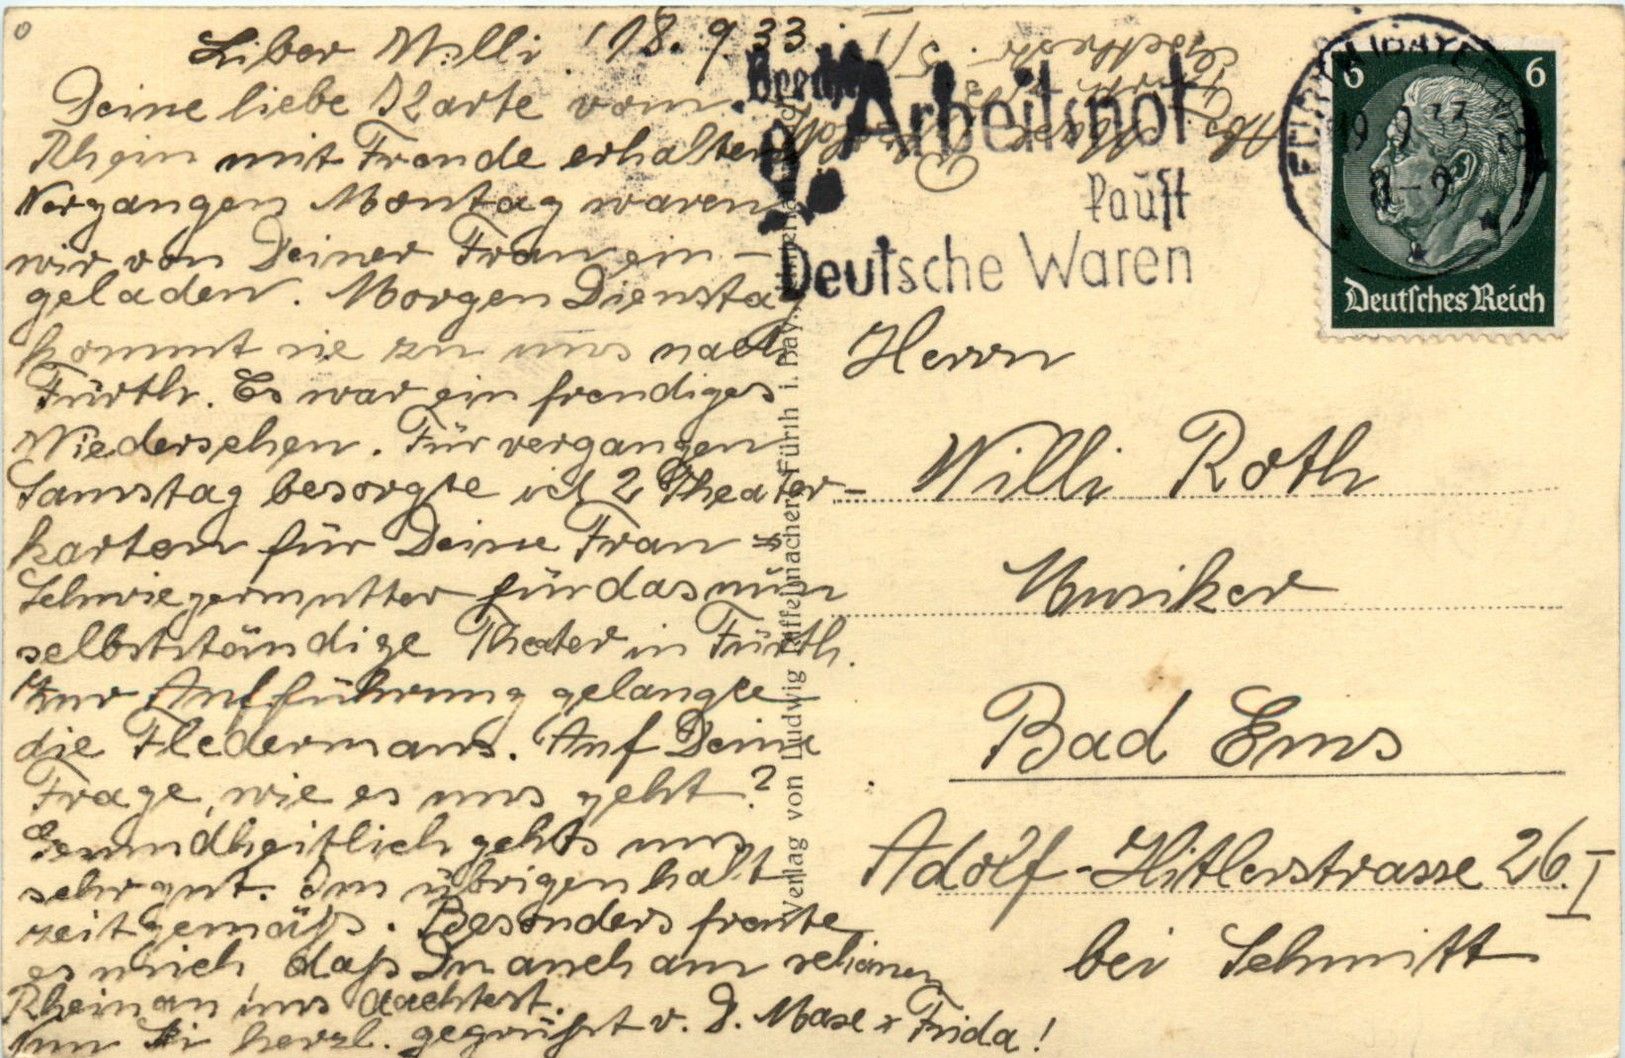 Liber Willi! 18. 9. 33.
Deine liebe Karte vom
Rhein mit Freude erhalten
Vergangen Montag waren
wir von Deiner Frau ein-
geladen. Morgen Dienstag
kommt sie zu uns nach
Fürth. Es war ein freudiges
Wiedersehen. Für vergangen
Samstag besorgte ich 2 Theater-
karten für Deine Frau &
Schwiegermutter für das nun
selbstständige Theater in Fürth.
Zur Aufführung gelangte
die Fledermaus. Auf Deine
Frage, wie es uns geht?
Gesundheitlich gehts uns
sehr gut. Im übrigen halt
zeitgemäß. Besonders freute
es mich, daß Du auch am schönen
Rhein an uns dachtest.
Nun sei herzl. gegrüßt v. D. Maxe & Frida!
Verlag von Ludwig Riffelmacher, Fürth i. Bay.
Abs.
Brecht
Arbeitsnot
kauft
Deutsche Waren
FÜRTH (BAYERN) 2
19 9 33
8-9
6 6
Deutsches Reich
Herrn
Willi Roth
Musiker
Bad Ems
Adolf-Hitlerstrasse 26.I
bei Schmitt